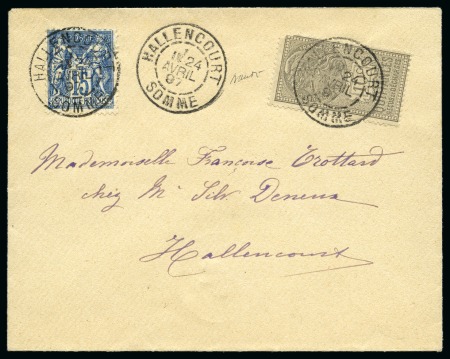 HALLENCOURT
24
AVRIL
SOMME
15
HALLENCOURT
1E
24
AVRIL
SOMME
HALLENCOURT
24
AVRIL
SOMME
Mademoiselle Françoise Trottard
chez Mr Silv. Deneux
Hallencourt